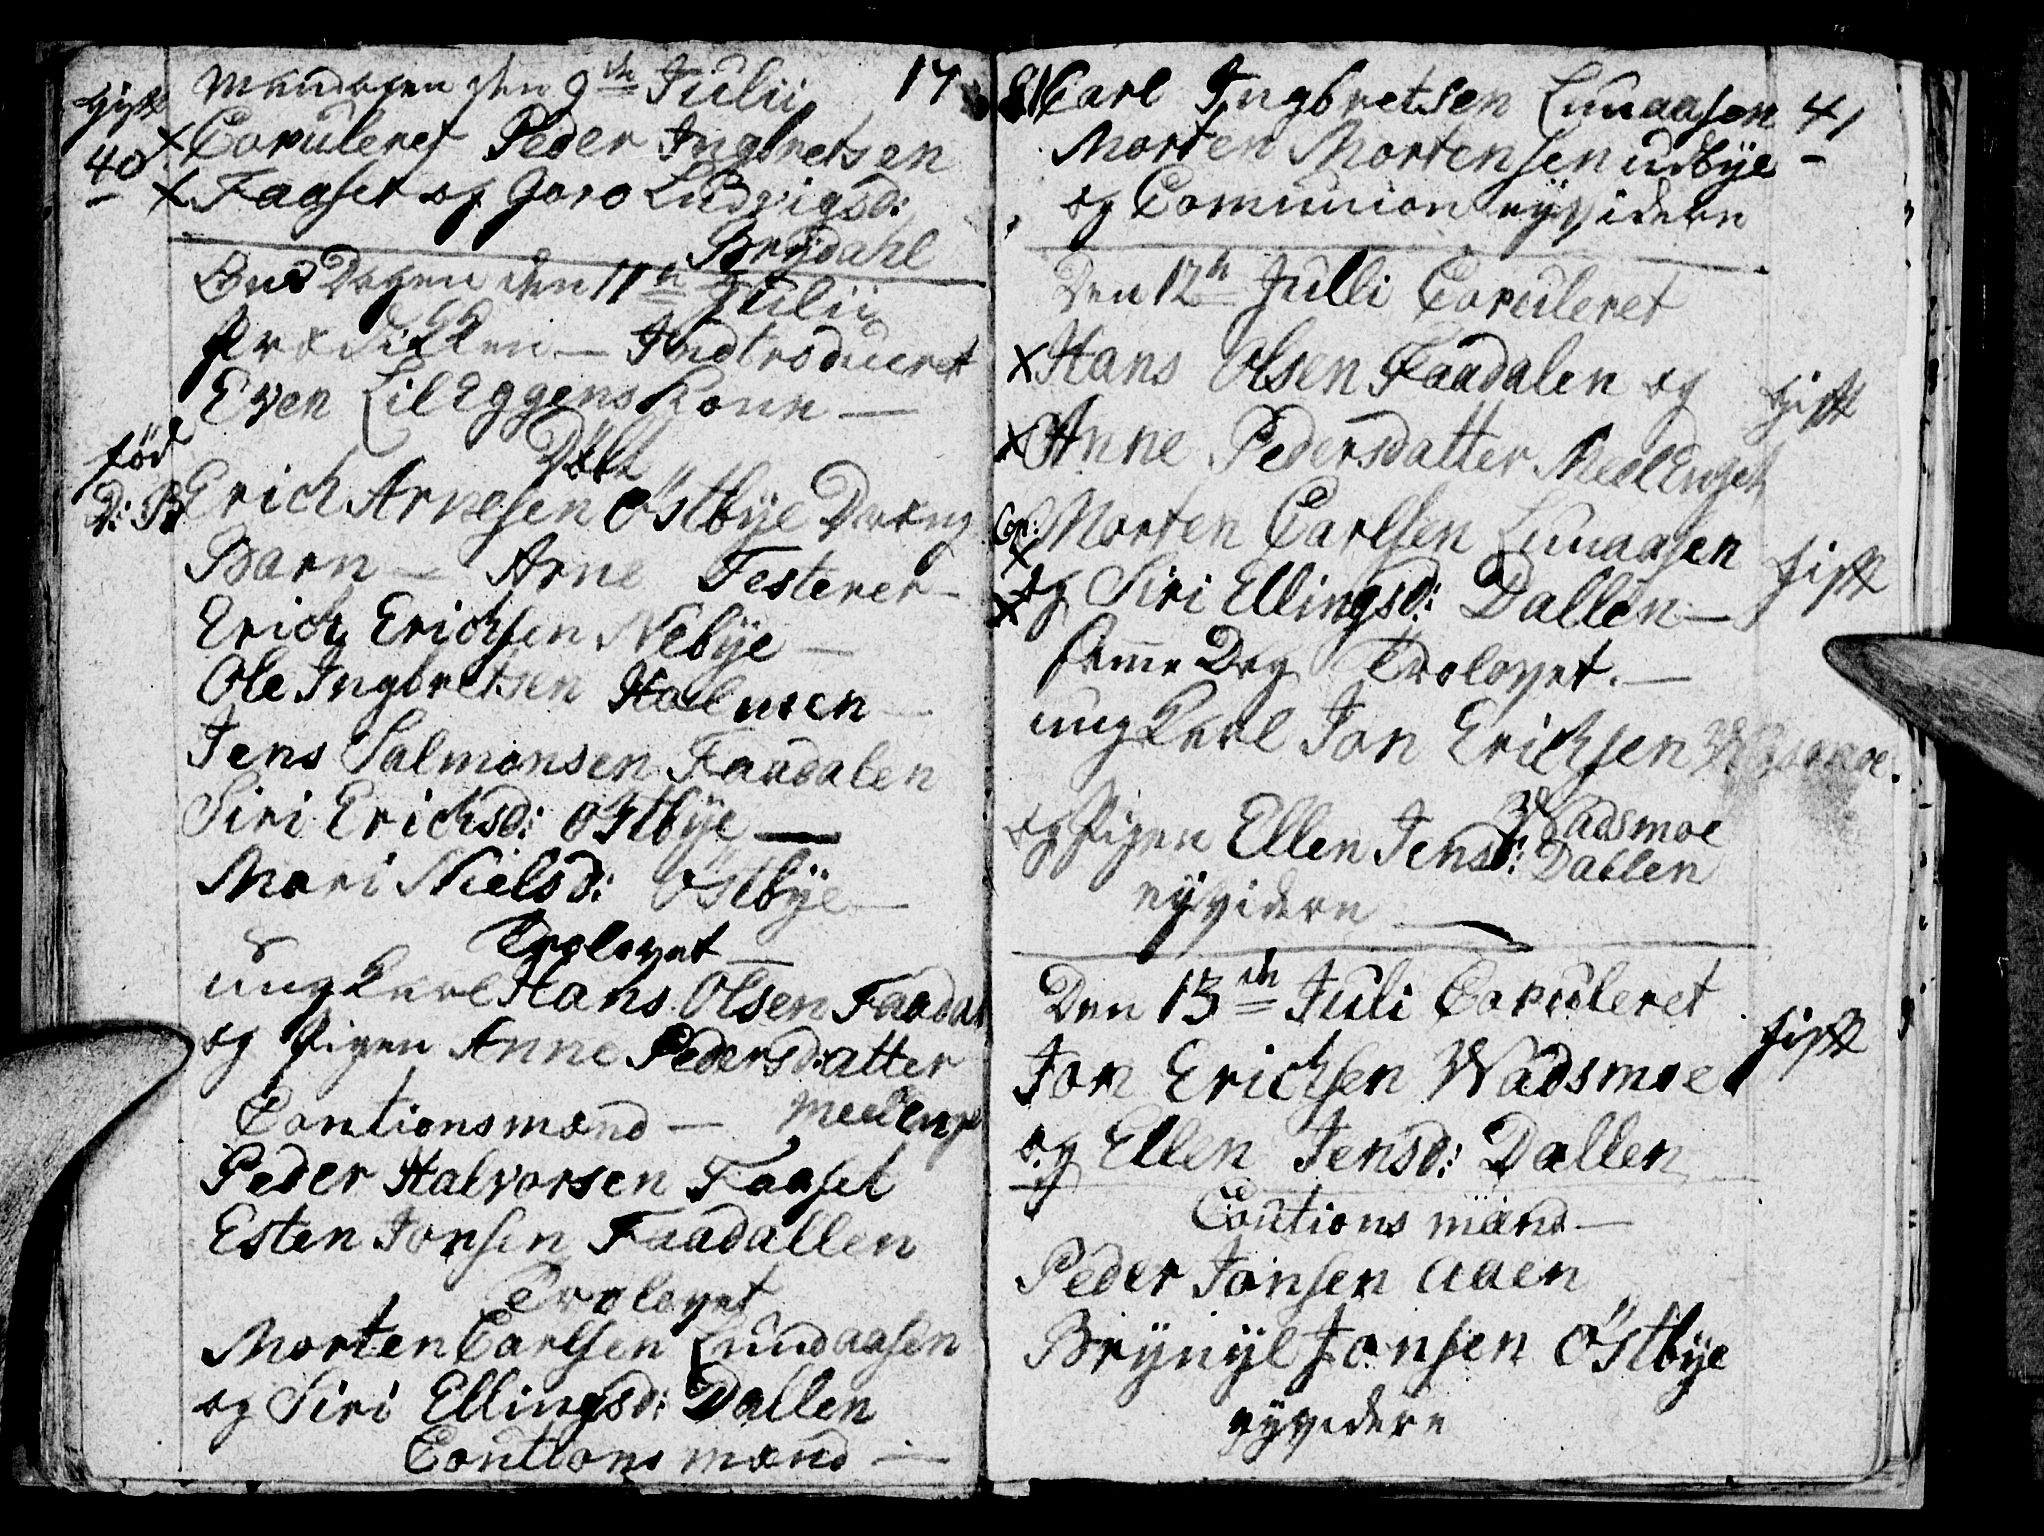 Mandagen den 9de Julii 17
Gift
Copuleret Peder Ingbretsen
40
Faaset og Goro Ludvigsd:
Brydahl
Bus Dagen den 11te Julii
prædikken — Indtroduceret
Even Lil Eggens Konn —
Døbt
fød
D: B
Erich Arnesen Östbÿe Dreng
Barn — Arne Testerer —
Erich Erichsen Nebÿe —
Ole Ingbretsen Holmen —
Jens Salmonsen Faadalen
Siri Erichsd: Östbÿe —
Mari Nielsd: Östbÿe —
Trolovet —
ung Karl Hans Olsen Faadal
og Pigen Anne Pedersdatter
Cautionsmænd — Medleng
Peder Halvorsen Faaset
Esten Jonsen Faadallen
Trolovet
Morten Carlsen Lunaasen
og Siri Ellingsd: Dallen
Cautions mænd —
81 Carl Ingbretsen Lunaasen 41
Morten Mortensen udbÿe —
og Comunion eÿvidere
Den 12te Julli Copuleret
X Hans Olsen Faadalen og
Gift
X Anne Pedersdatter Medlenget
Cop: Morten Carlsen Lunaasen
X
Gift
og Siri Ellingsd: Dallen —
X
samme Dag Trolovet. —
ung Karl Jon Erichsen
Wadsmoe
og Pigen Ellen Jensd: Dallen
eÿvidere —
Den 13de Juli Copuleret
Gift
Jon Erichsen Wadsmoe
og Ellen Jensd: Dallen
Cautions mænd —
Peder Jonsen Aaen
Brÿnÿl Jonsen Östbÿe
eÿvidere